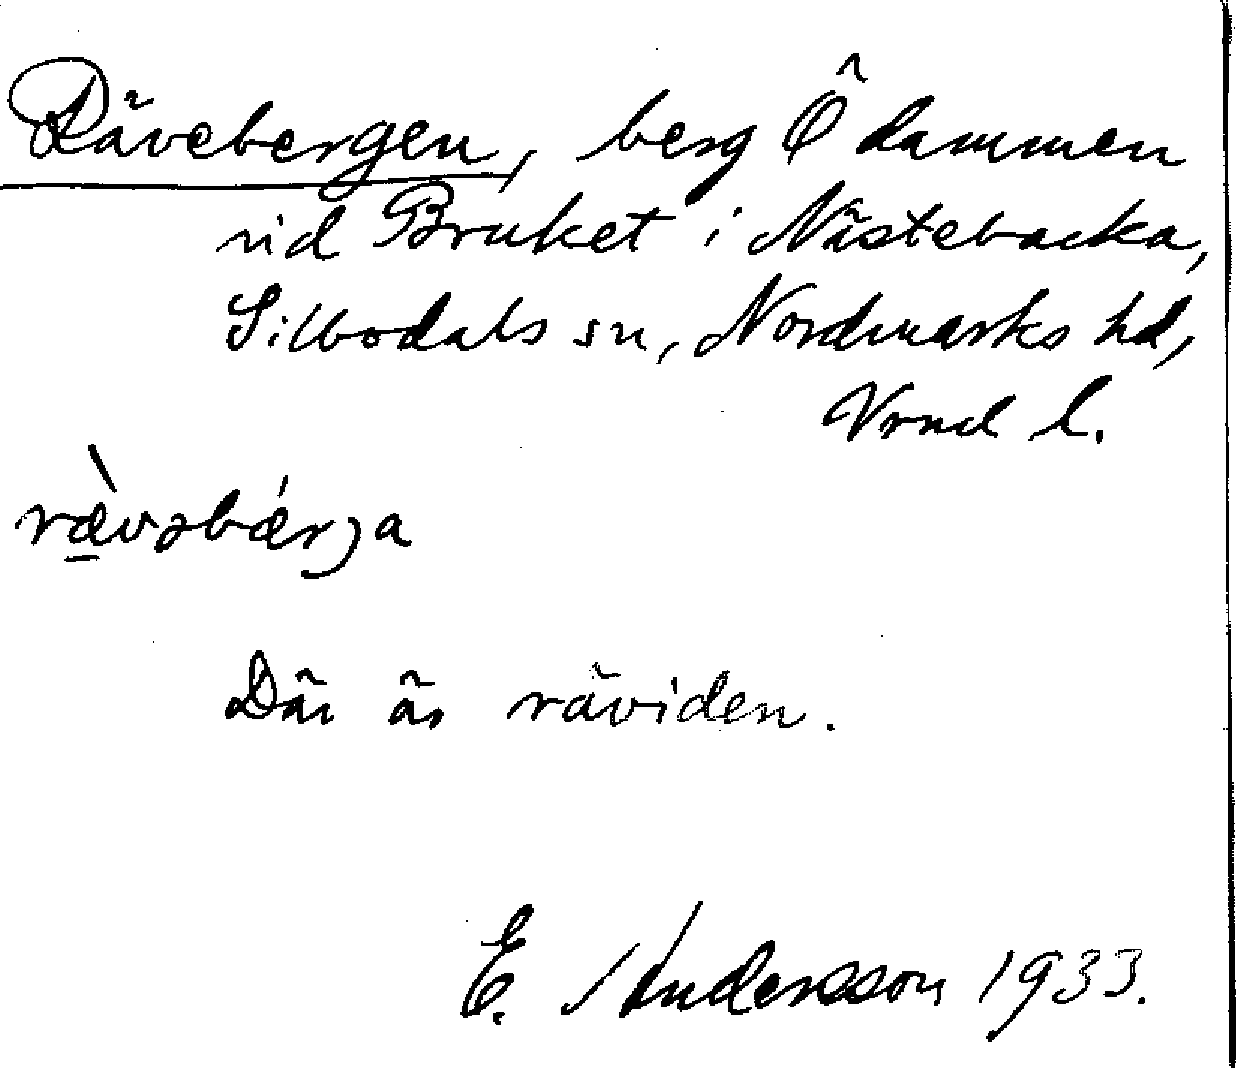 Rävebergen, berg Ö dammen
vid Bruket i Nästebacka,
Silbodals sn, Nordmarks hd,
Vrml l.
rævəbærja
Där är räviden.
E. Andersson 1933.